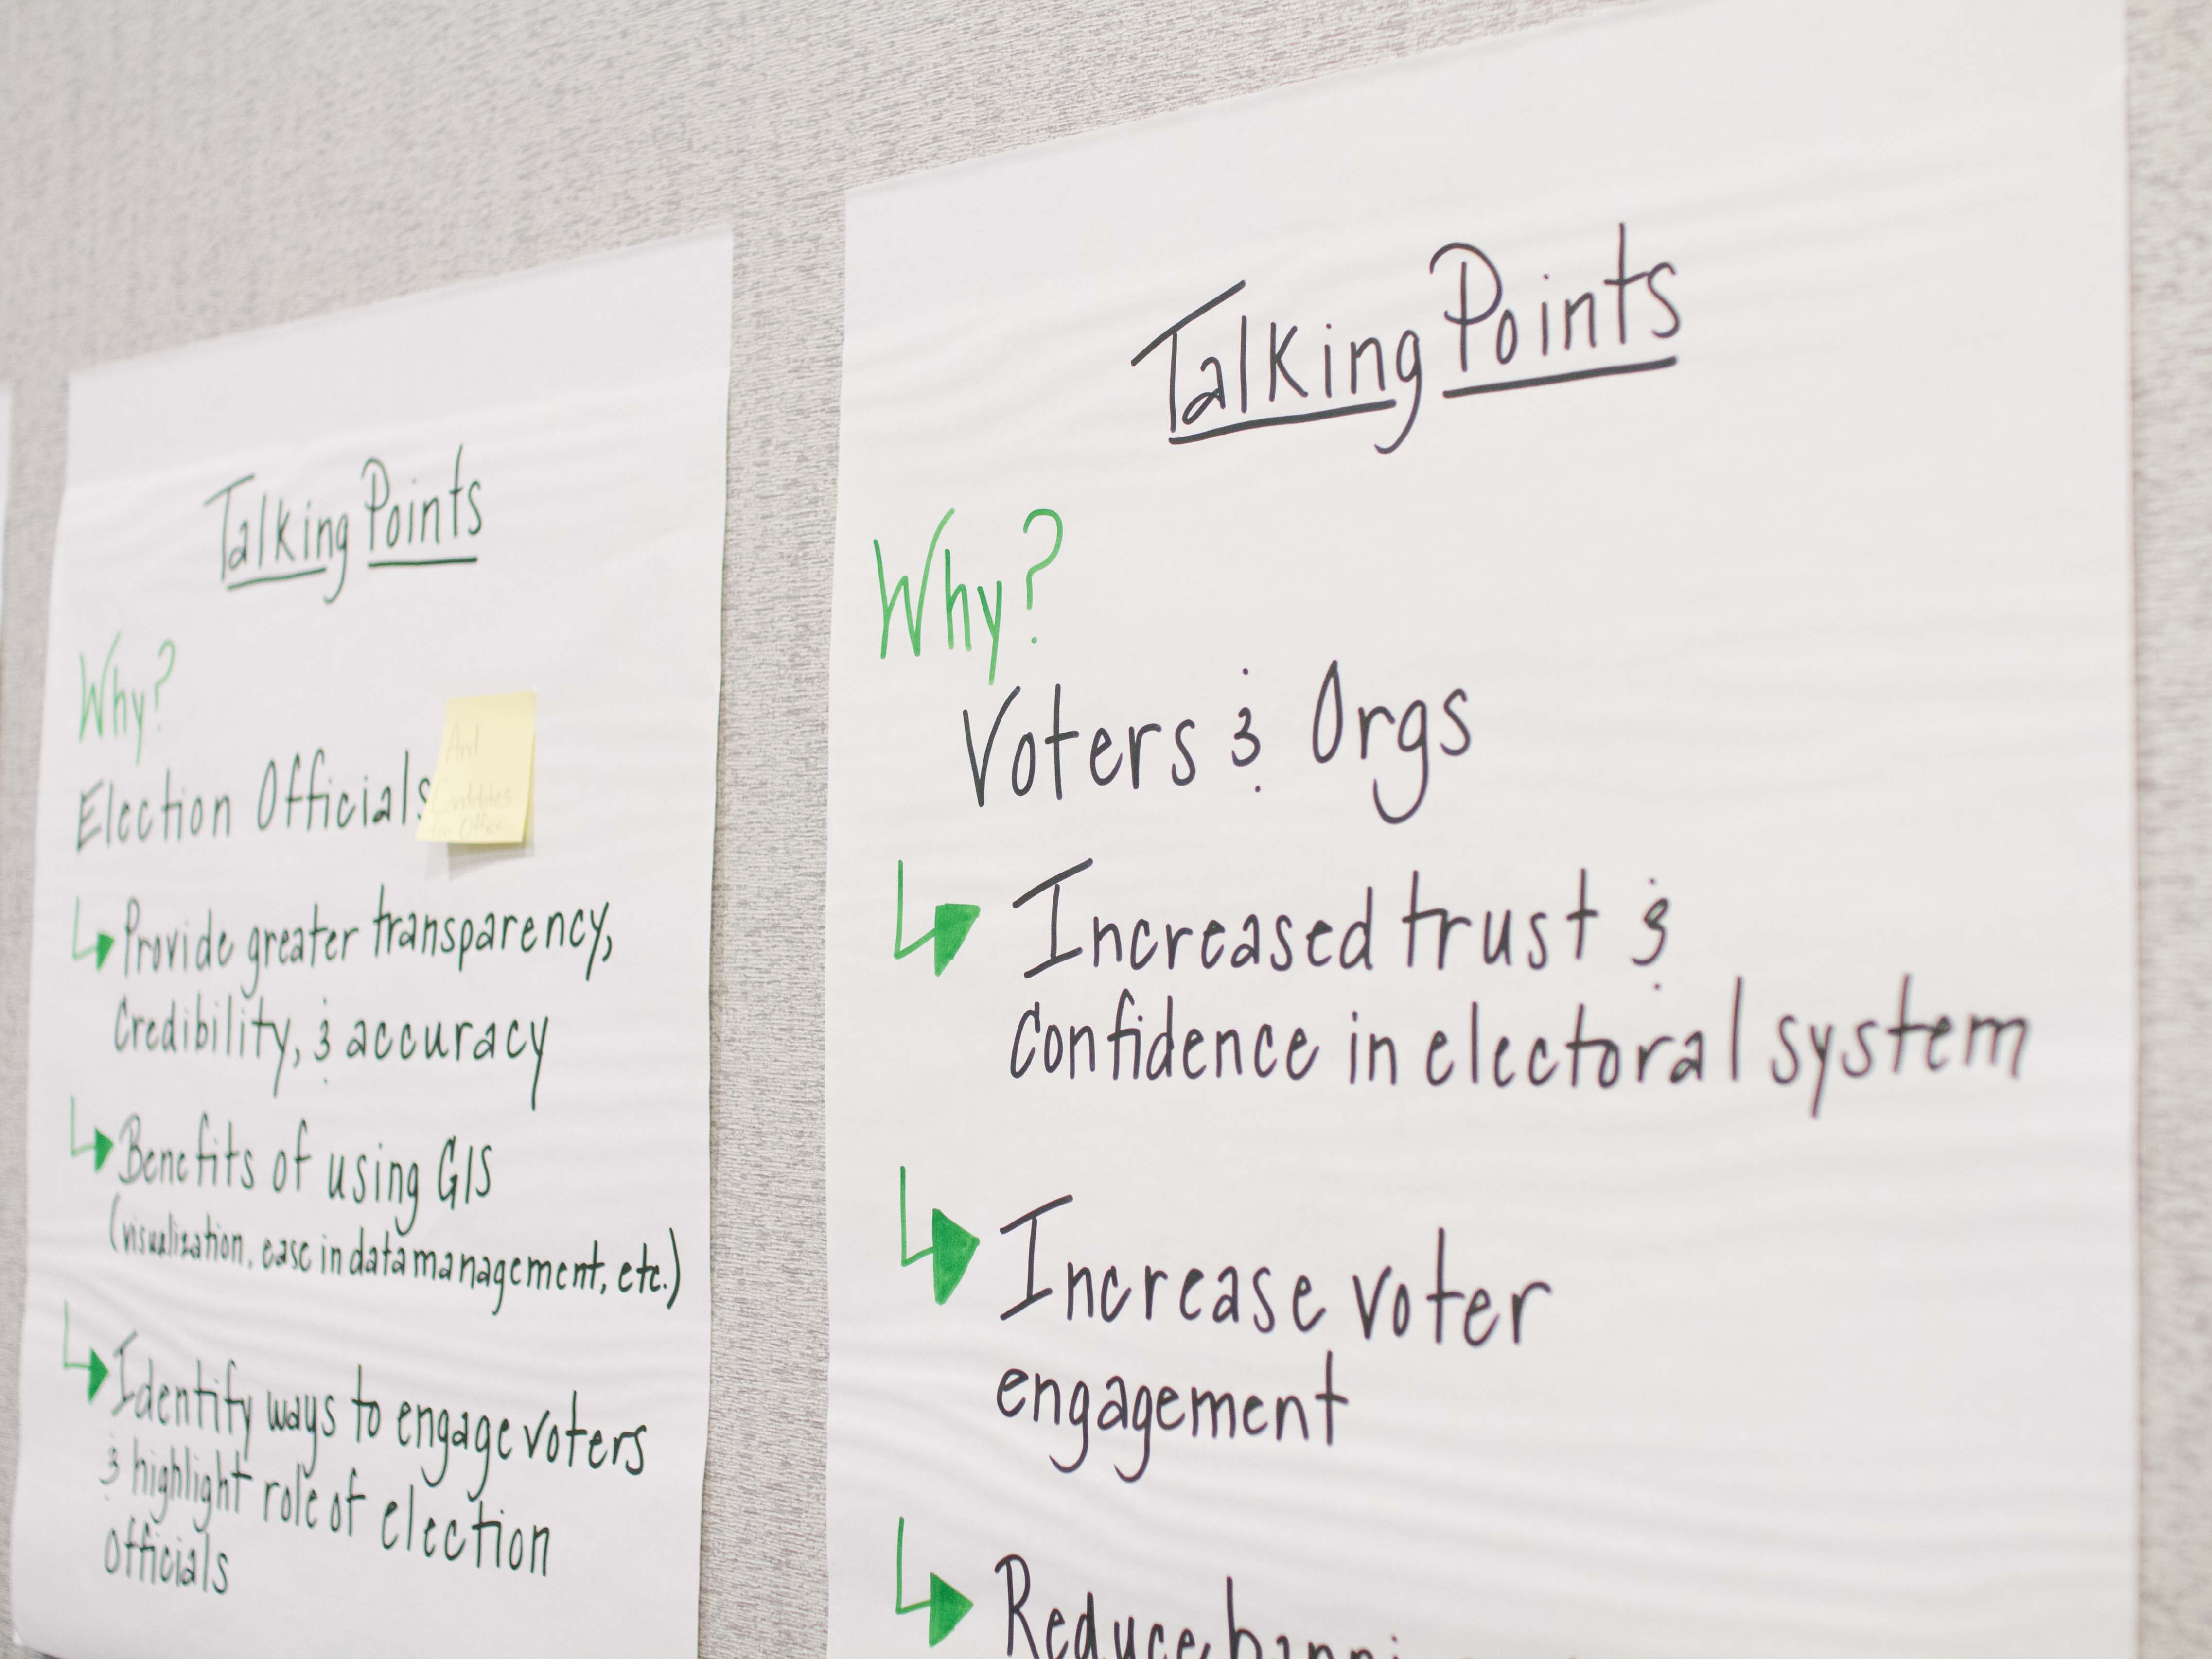 Talking Points
Why?
Election Officials
And
Candidates
for Office
Provide greater transparency,
Credibility, & accuracy
Benefits of using GIS
(visualization, ease in data management, etc.)
Identify ways to engage voters
& highlight role of election
officials
Talking Points
Why?
Voters & Orgs
Increased trust &
Confidence in electoral system
Increase voter
engagement
Reduce